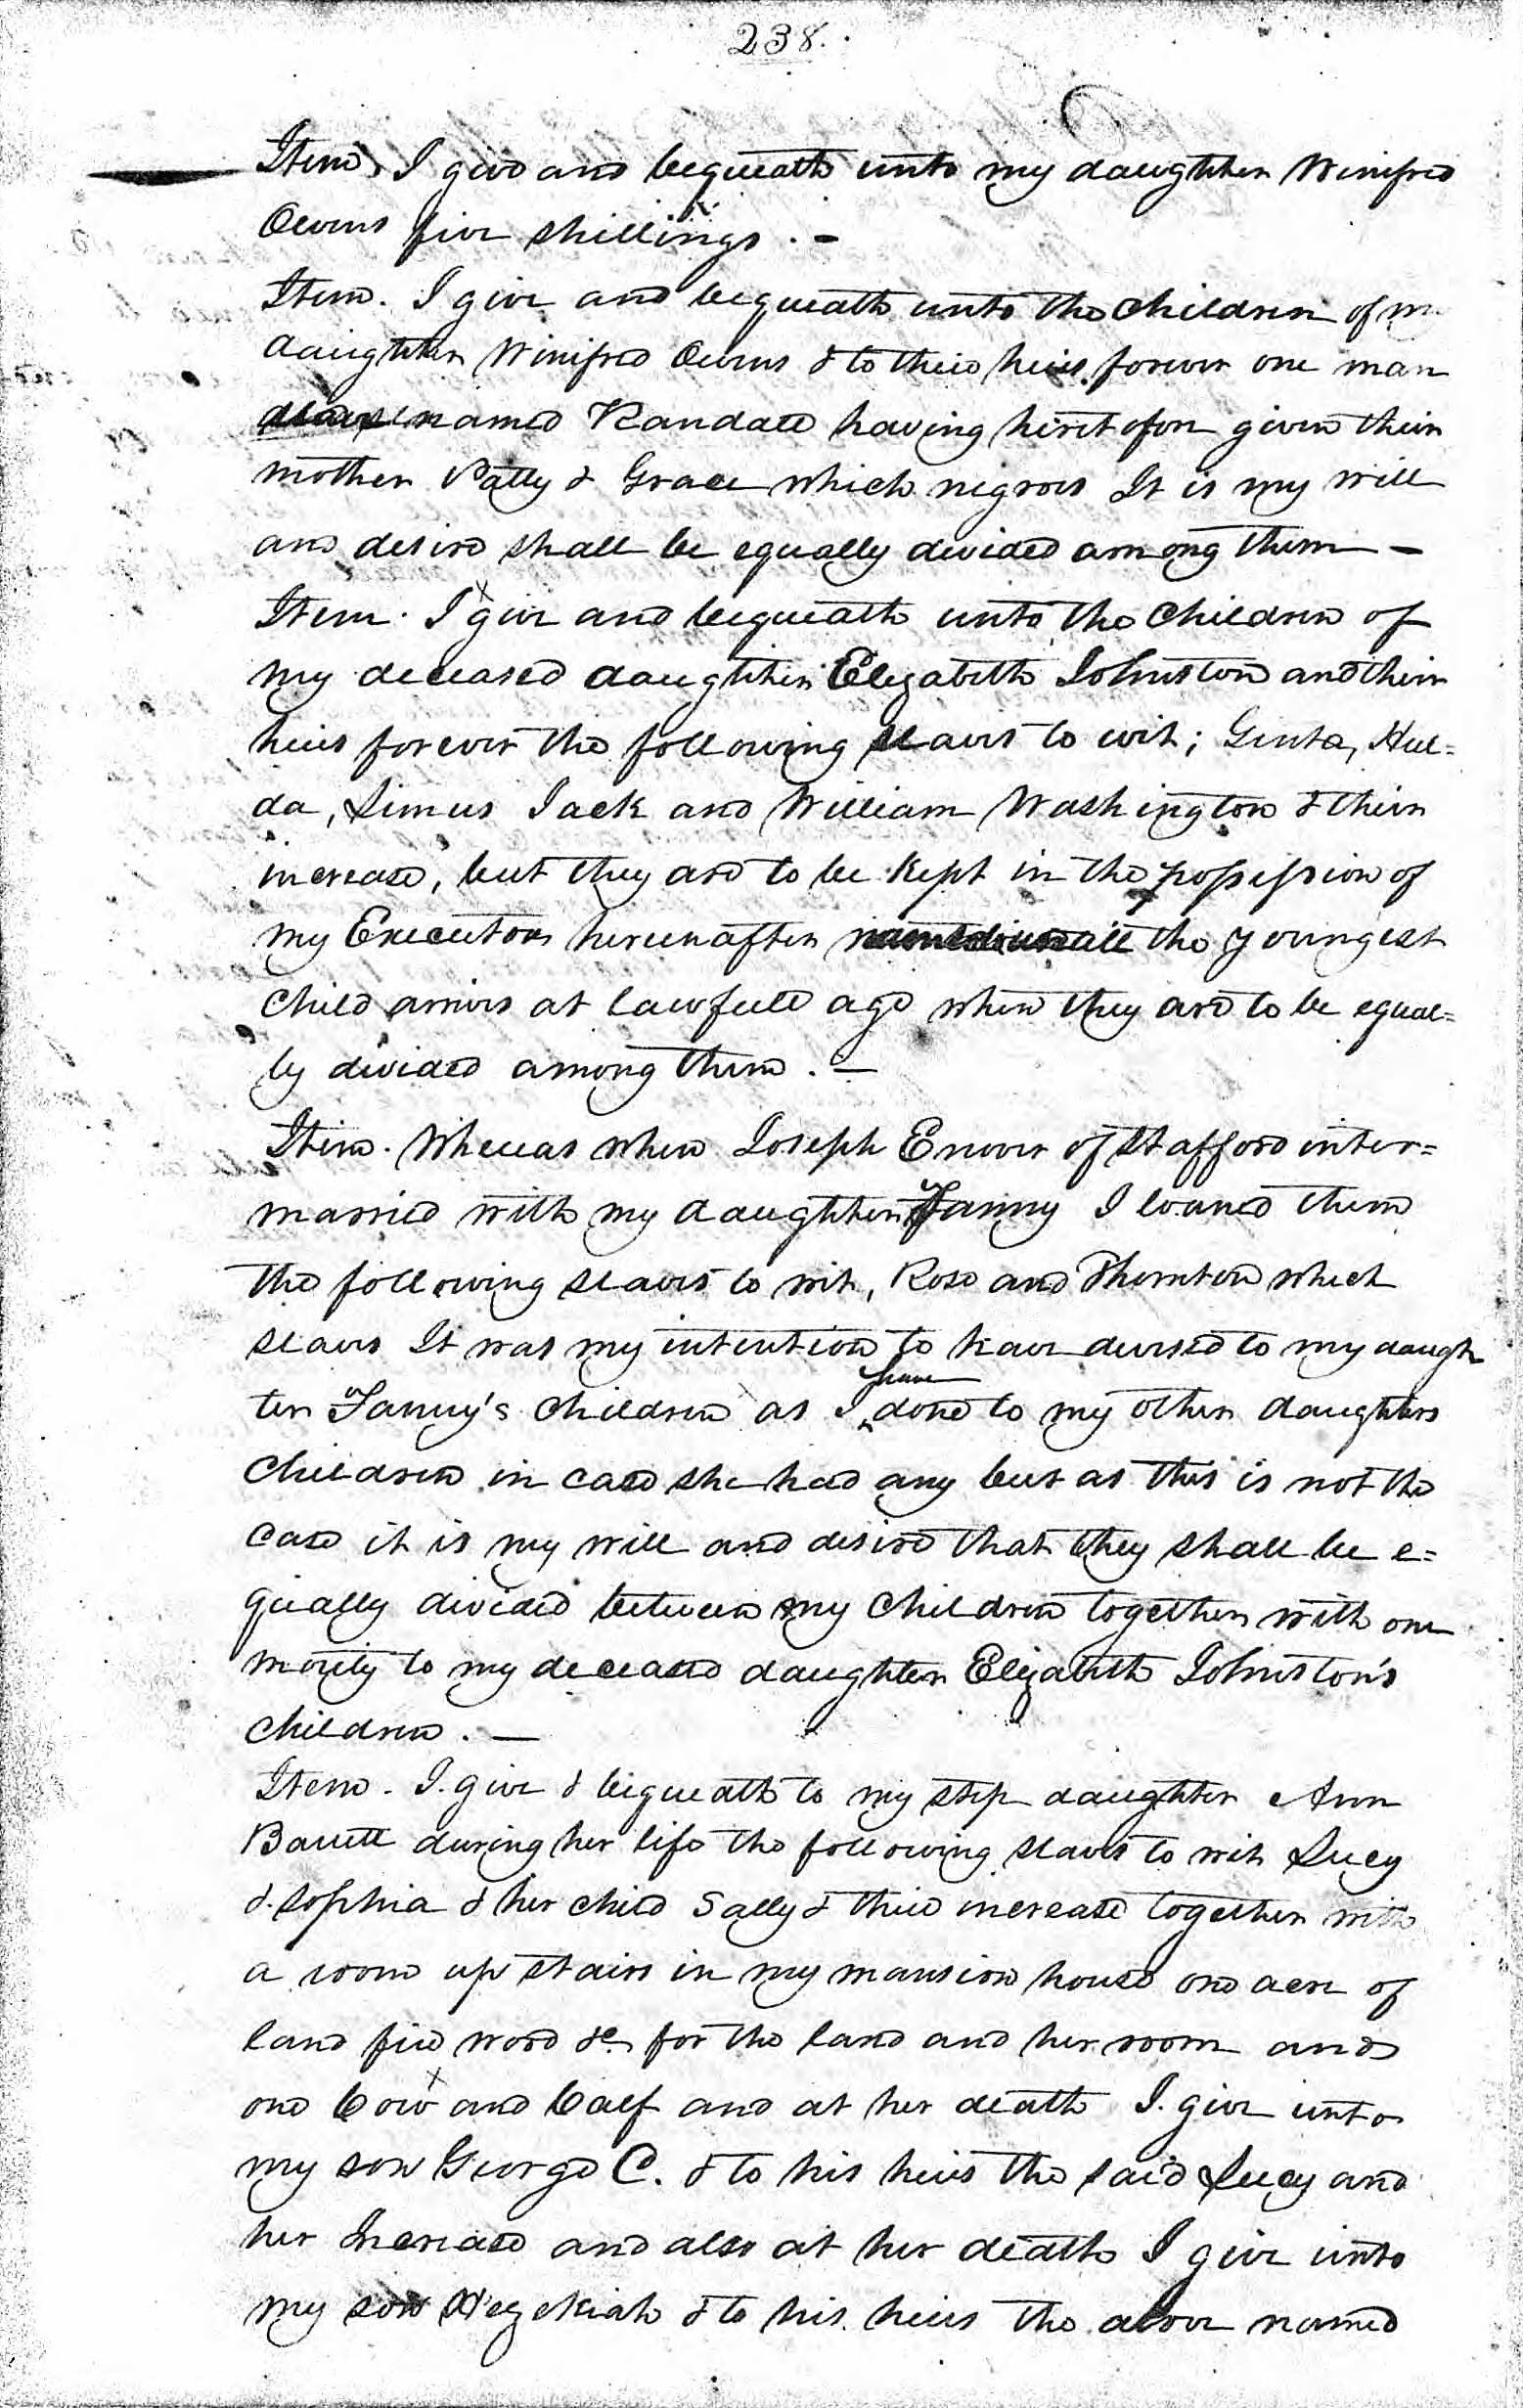 238.
Item. I give and bequeath unto my daughter Winifred
Owens five shillings. -
Item. I give and bequeath unto the children of my
daughter Winifred Owens & to their heirs forever one man
slave named Randall having heretofore given their
mother Patty & Grace which negroes It is my will
and desire shall be equally divided among them -
Item. I give and bequeath unto the children of
my deceased daughter Elizabeth Johnston and their
heirs forever the following slaves to wit; Hul=
da, Simus Jack and William Washington & their
increase, but they are to be kept in the possession of
my Executors hereinafter the youngest
child arrives at lawfull age when they are to be equal=
ly divided among them. -
Item. Whereas when Joseph Ennver of Stafford inter=
married with my daughter Fanny I loaned them
the following slaves to wit, Rose and Thornton which
slaves It was my intention to have devised to my daugh
ter Fanny's children as I have done to my other daughters
children in case she had any but as this is not the
case it is my will and desire that they shall be e=
qually divided between my children together with one
moiety to my deceased daughter Elizabeth Johnston's
children. -
Item. I. give & bequeath to my step daughter Ann
Barrett during her life the following slaves to wit Lucy
& Sophia & her child Sally & their increase together with
a room up stairs in my mansion house one acre of
land fire wood &c for the land and her room and
one Cow and Calf and at her death I. give unto
my son George C. & to his heirs the said Lucy and
her Increase and also at her death I give unto
my son Hezekiah & to his heirs the above named